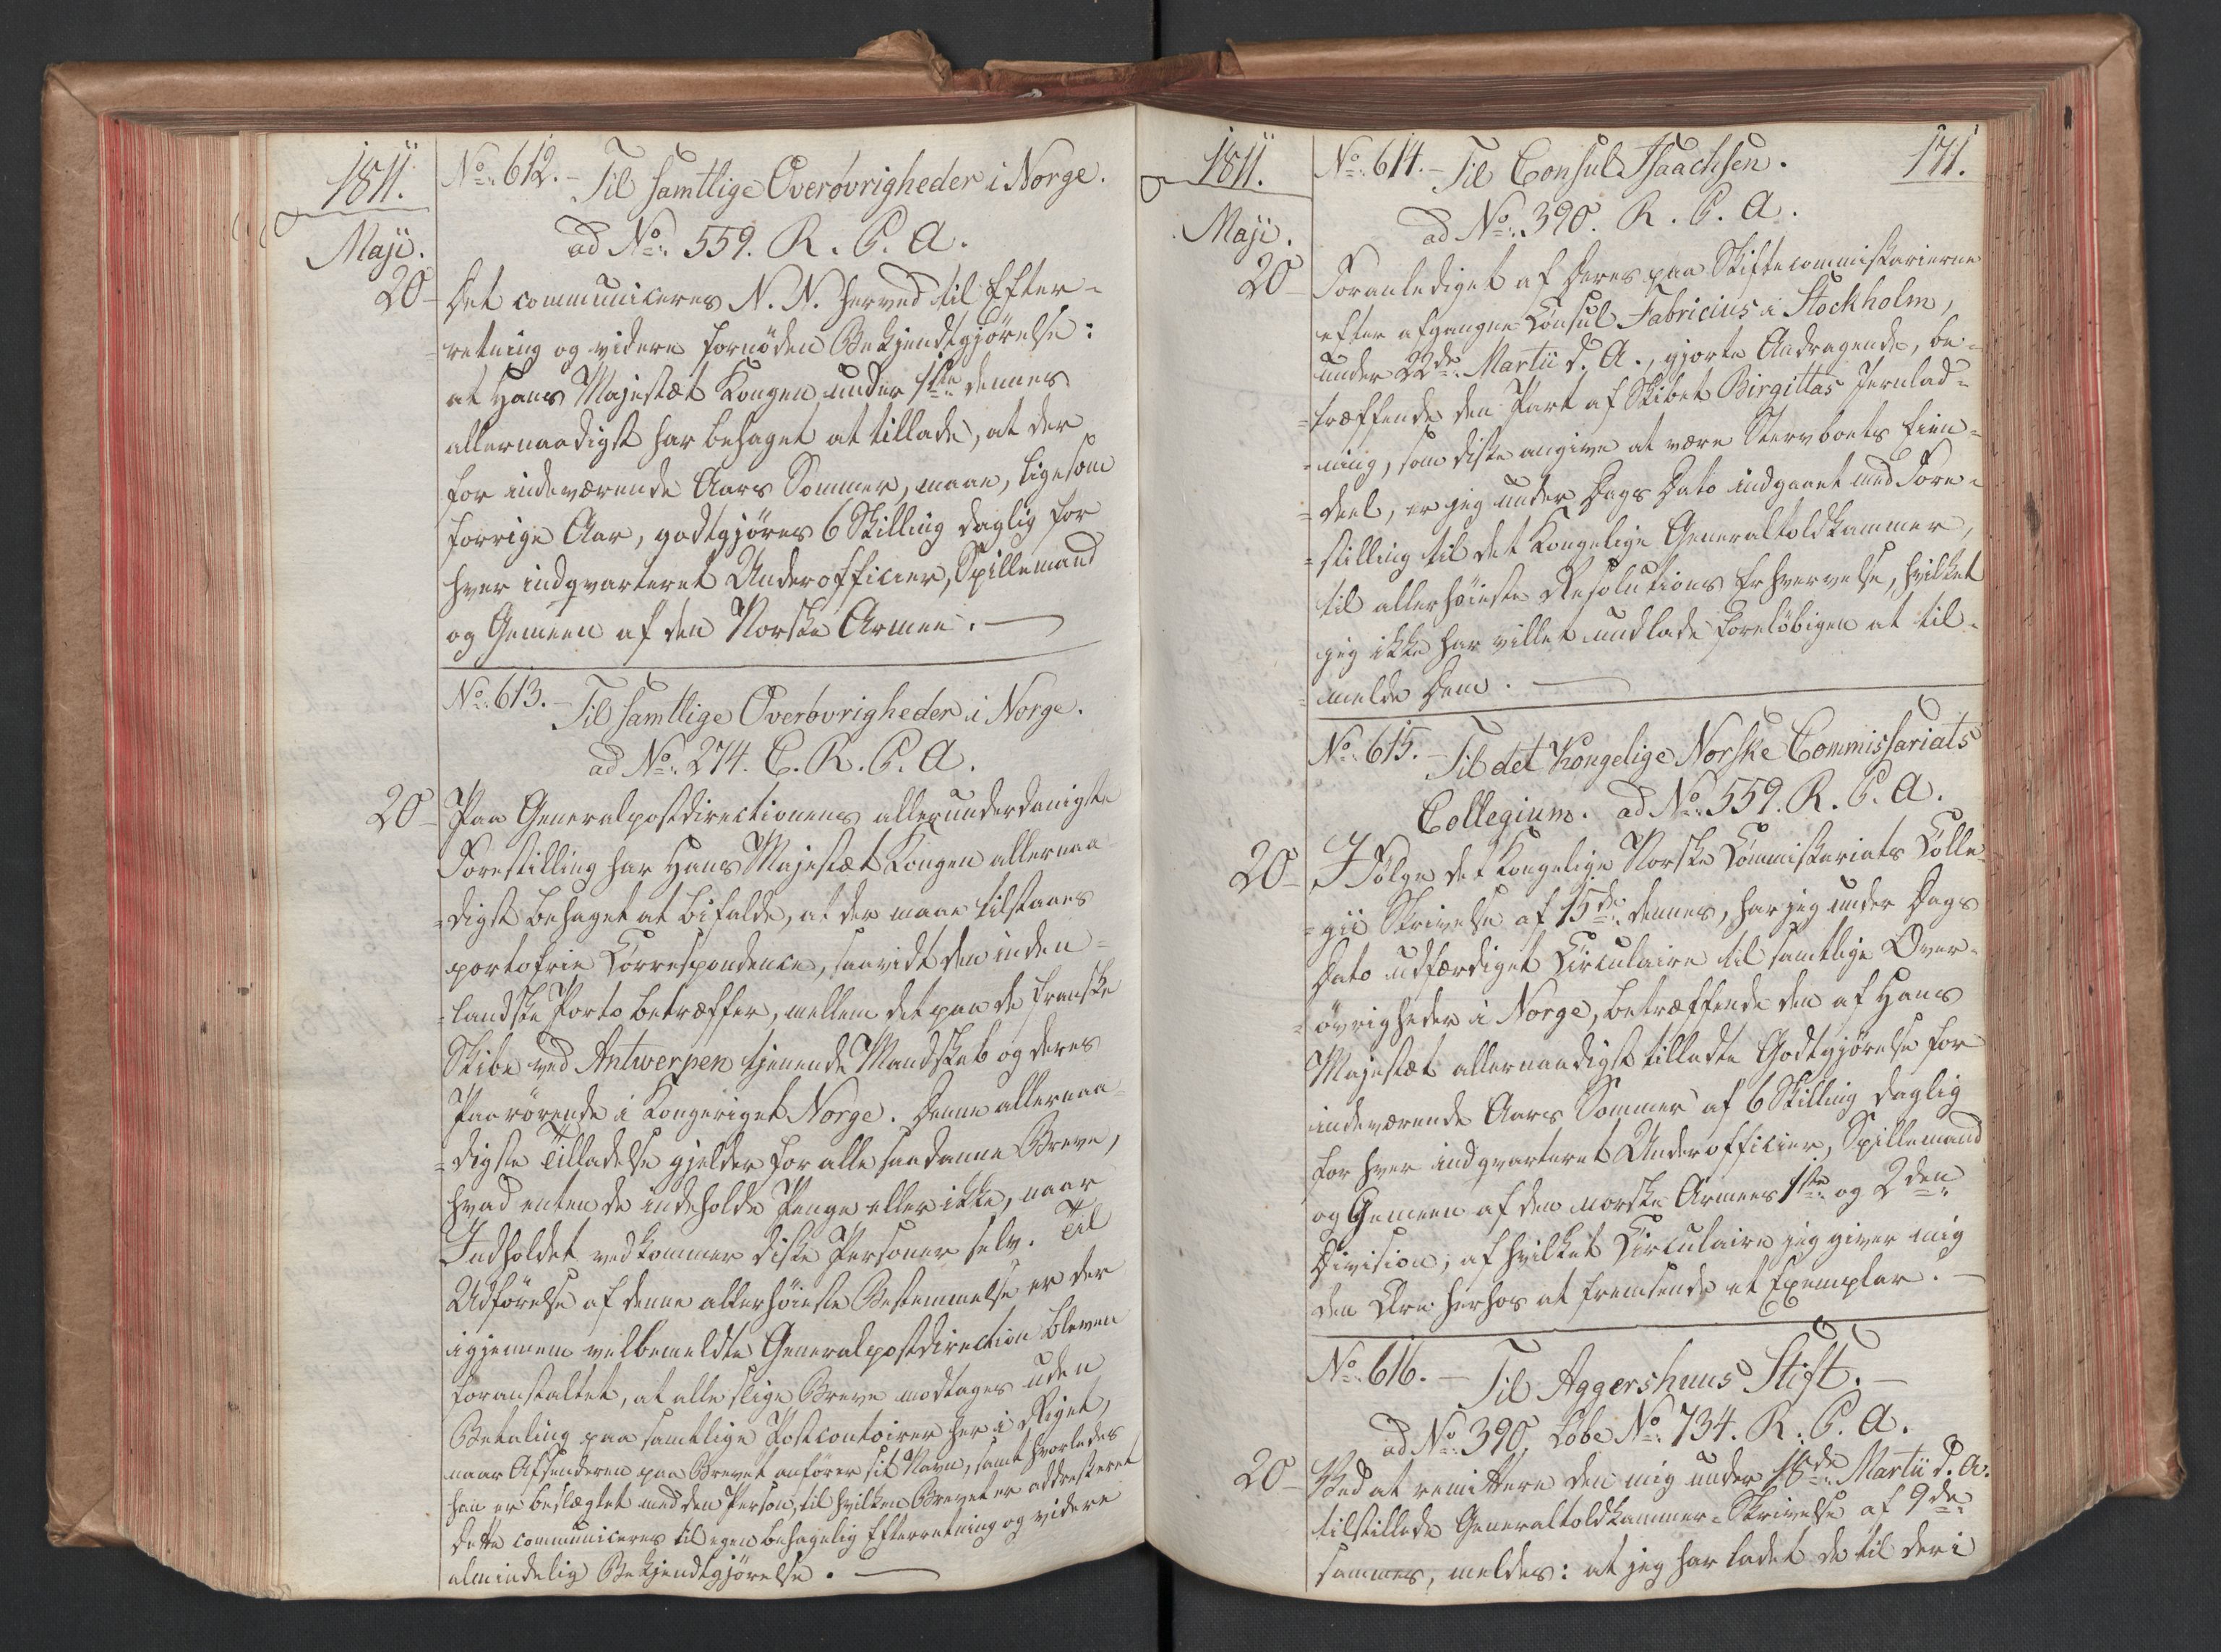 1811.
Maji.
No: 612. – Til samtlige Overøvrigheder i Norge.
ad No: 559. R. C. A.
20 – Det communiceres N. N. herved til Efter-
=retning og videre fornøden Bekjendtgjörelse:
at Hans Majestæt Kongen under 1ste dennes
allernaadigst har behaget at tillade, at der
for indeværende Aars Sommer, maae, ligesom
forrige Aar, godtgjöres 6 Skilling daglig for
hver indqvarteret Underofficier, Spillemand
og Gemeen af den Norske Armee. —
No: 613. – Til samtlige Overøvrigheder i Norge.
ad No: 274. C. R. C. A.
20 – Paa Generalpostdirectionens allerunderdanigste
Forestilling har Hans Majestæt Kongen allernaa
=digst behaget at bifalde, at der maae tilstaaes
portofrie Correspondence, saavidt den inden-
=landske Porto betræffer, mellem det paa de franske
Skibe ved Antwerpen tjenende Mandskab og deres
Paarörende i Kongeriget Norge. Denne allernaa-
=digste Tilladelse gjelder for alle saadanne Breve,
hvad enten de indeholde Penge eller ikke, naar
Indholdet vedkommer diske Personer selv. Til
Udförelse af denne allerhöieste Bestemmelse er der
igjennem velbemeldte Generalpostdirection bleven
foranstaltet, at alle slige Breve modtages uden
Betaling paa samtlige Postcontoirer her i Riget,
naar Afsenderen paa Brevet anförer sit Navn, samt hvorledes
han er beslægtet med den Person, til hvilken Brevet er addresseret
Dette communiceres til egen behagelig Efterretning og videre
almindelig Bekjendtgjörelse. —
1811.
Maji.
171.
No: 614. – Til Consul Isaachsen.
ad No: 390. R. C. A.
20 – Foranlediget af Deres paa Skiftecommissarierne
efter afgangne Consul Fabricius i Stockholm,
under 22de Martii d. A., gjorte Andragende, be-
=træffende den Part af Skibet Birgittas Jernlad-
=ning, som disse angive at være Stervboets Eien-
=deel, er jeg under Dags Dato indgaaet med Fore-
=stilling til det Kongelige Generaltoldkammer,
til allerhöieste Resolutions Erhvervelse, hvilket
jeg ikke har villet undlade foreløbigen at til-
=melde Dem. —
No: 615. – Til det Kongelige Norske Commissariats
Collegium. ad No: 559. R. C. A.
20 – I Fölge det Kongelige Norske Commissariats Colle-
=gii Skrivelse af 15de dennes, har jeg under Dags
Dato udfærdiget Circulaire til samtlige Over-
=øvrigheder i Norge, betræffende den af Hans
Majestæt allernaadigst tilladte Godtgjörelse for
indeværende Aars Sommer af 6 Skilling daglig
for hver indqvarteret Underofficier, Spillemand
og Gemeen af den norske Armees 1ste og 2den
Division; af hvilket Circulaire jeg giver mig
den Ære herhos at fremsende et Exemplar. —
No: 616. – Til Aggershuus Stift. –
ad No: 390, Löbe No: 734. R. C. A.
20 – Ved at remittere den mig under 18de Martii d. A.
tilstillede Generaltoldkammer-Skrivelse af 9de
sammes, meldes: at jeg har ladet de til deri